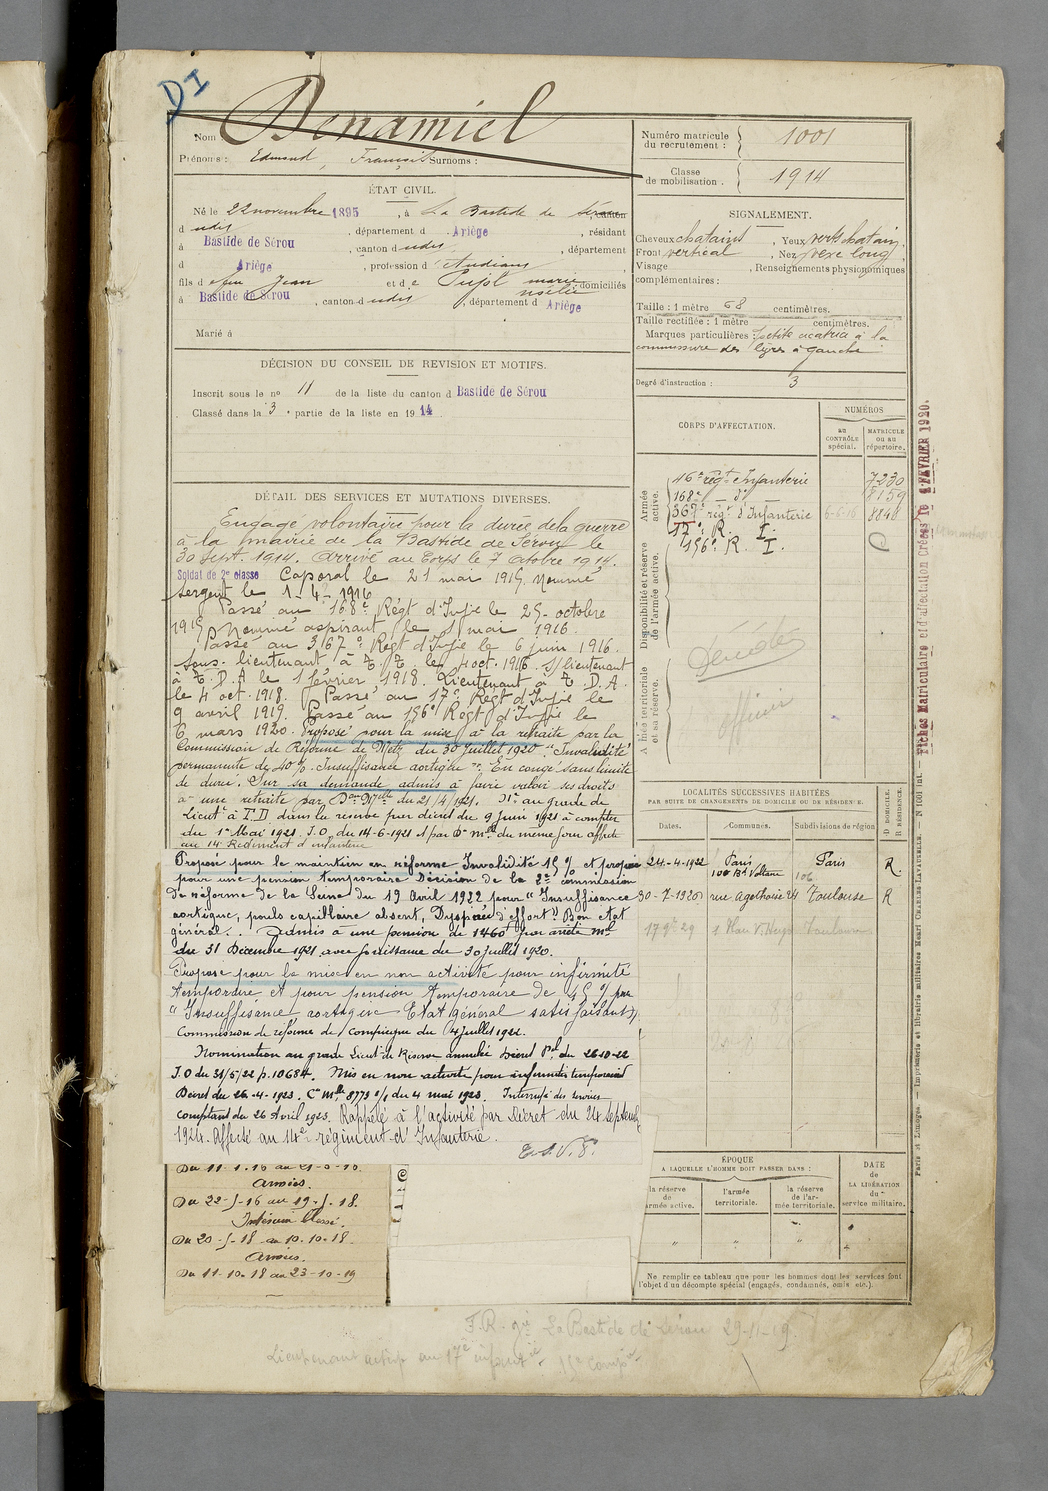 DI
Nom Dénamiel
Prénoms : Edmond, François Surnoms :
ÉTAT CIVIL.
Né le 22 novembre 1895, à La Bastide de Sérou, canton
d udit, département d Ariège, résidant
à Bastide de Sérou, canton d udit, département
d Ariège, profession d' étudiant,
fils d e feu Jean et d e Pujol marie noélie domiciliés
à Bastide de Sérou, canton d udit, département d Ariège
Marié à
DÉCISION DU CONSEIL DE REVISION ET MOTIFS.
Inscrit sous le no 11 de la liste du canton d Bastide de Sérou
Classé dans la 3e partie de la liste en 1914
DÉTAIL DES SERVICES ET MUTATIONS DIVERSES.
Engagé volontaire pour la durée de la guerre
à la mairie de la Bastide de Sérou le
30 Sept. 1914. Arrivé au Corps le 7 octobre 1914.
Soldat de 2e classe Caporal le 21 mai 1915, nommé
sergent le 1-4-1916
Passé au 168e Régt d'Infie le 25 octobre
1915. Nommé aspirant le 1 mai 1916.
Passé au 367e Régt d'Infie le 6 juin 1916.
Sous-lieutenant à T.T. le 4 oct. 1916. S/lieutenant
à T.D.A le 1 février 1918. Lieutenant à T.D.A.
le 4 oct. 1918. Passé au 17e Régt d'Infie le
9 avril 1919. Passé au 156e Régt d'Infie le
6 mars 1920. Proposé pour la mise à la retraite par la
Commission de Réforme de Metz du 30 Juillet 1920 "Invalidité
permanente de 40%. Insuffisance aortique". En congé sans limite
de durée. Sur sa demande admis à faire valoir ses droits
à une retraite par Don Mlle du 21/4/1921. au grade de
Lieut à T.D dans la réserve par décret du 9 Juin 1921 à compter
du 1er Mai 1921. J.O. du 14-6-1921 et par Don mlle du même jour affecté
au 14 Régiment d'infanterie
Proposé pour le maintien en réforme Invalidité 15% et proposé
pour une pension temporaire Décision de la 2e commission
de réforme de la Seine du 19 Avril 1922 pour "Insuffisance
aortique, pouls capillaire absent, Dyspnée d'effort" Bon état
général. Admis à une pension de 1460f par arrêté ml
du 31 Décembre 1921 avec jouissance du 30 juillet 1920.
Proposé pour la mise en non activité pour infirmité
temporaire et pour pension temporaire de 15% par
"Insuffisance aortique Etat général satisfaisant".
Commission de réforme de Compiègne du 4 Juillet 1922.
Nomination au grade Lieut de Réserve annulée Décret Pel du 26-10-22
J.O du 31/5/22 p. 10684. Mis en non activité pour infirmités temporaires
Décret du 26-4-1923. Con Mlle 8773 2/1 du 4 mai 1923. Interrup. des services
comptant du 26 Avril 1923. Rappelé à l'activité par Décret du 24 septemb
1924. Affecté au 14e régiment d'Infanterie.
T.S.V.P.
Du 11-1.16 au 21-5-16.
Armées.
Du 22-5-16 au 19-5-18.
Intérieur blessé.
Du 20-5-18 au 10-10-18.
Armées.
Du 11-10-18 au 23-10-19
Numéro matricule
du recrutement : 1001
Classe
de mobilisation. 1914
SIGNALEMENT.
Cheveux chatains, Yeux verts chatain,
Front vertical, Nez vexe long,
Visage , Renseignements physionomiques
complémentaires :
Taille : 1 mètre 68 centimètres.
Taille rectifiée : 1 mètre centimètres.
Marques particulières : petite cicatrice à la
commissure des lèvres à gauche
Degré d'instruction : 3
CORPS D'AFFECTATION.
NUMÉROS
au CONTRÔLE spécial.
MATRICULE ou au répertoire.
Armée active.
16e régt Infanterie 7230
168e - d° - 8159
367e régt d'Infanterie 6-6-16 8848
17e R. I.
156e R. I.
Disponibilité et réserve
de l'armée active.
Armée territoriale
et sa réserve.
officier
LOCALITÉS SUCCESSIVES HABITÉES
PAR SUITE DE CHANGEMENTS DE DOMICILE OU DE RÉSIDENCE.
Dates. Communes. Subdivisions de région
D DOMICILE.
R RÉSIDENCE.
24-4-1922 Paris 100 Bd Voltaire Paris R.
30-7-1920 rue Agathoise 24 Toulouse R
Fiches Matriculaire et d'affectation Créées le FÉVRIER 1920.
Paris et Limoges. — Imprimerie et librairie militaires Henri CHARLES-LAVAUZELLE. — N° 1001 int.
ÉPOQUE
A LAQUELLE L'HOMME DOIT PASSER DANS :
DATE
de
LA LIBÉRATION
du
service militaire.
la réserve
de l'armée active.
l'armée
territoriale.
la réserve
de l'armée territoriale.
Ne remplir ce tableau que pour les hommes dont les services font
l'objet d'un décompte spécial (engagés, condamnés, omis etc.).
F.R. La Bastide de Sérou 29-11-19.
Lieutenant active au 17e infanie